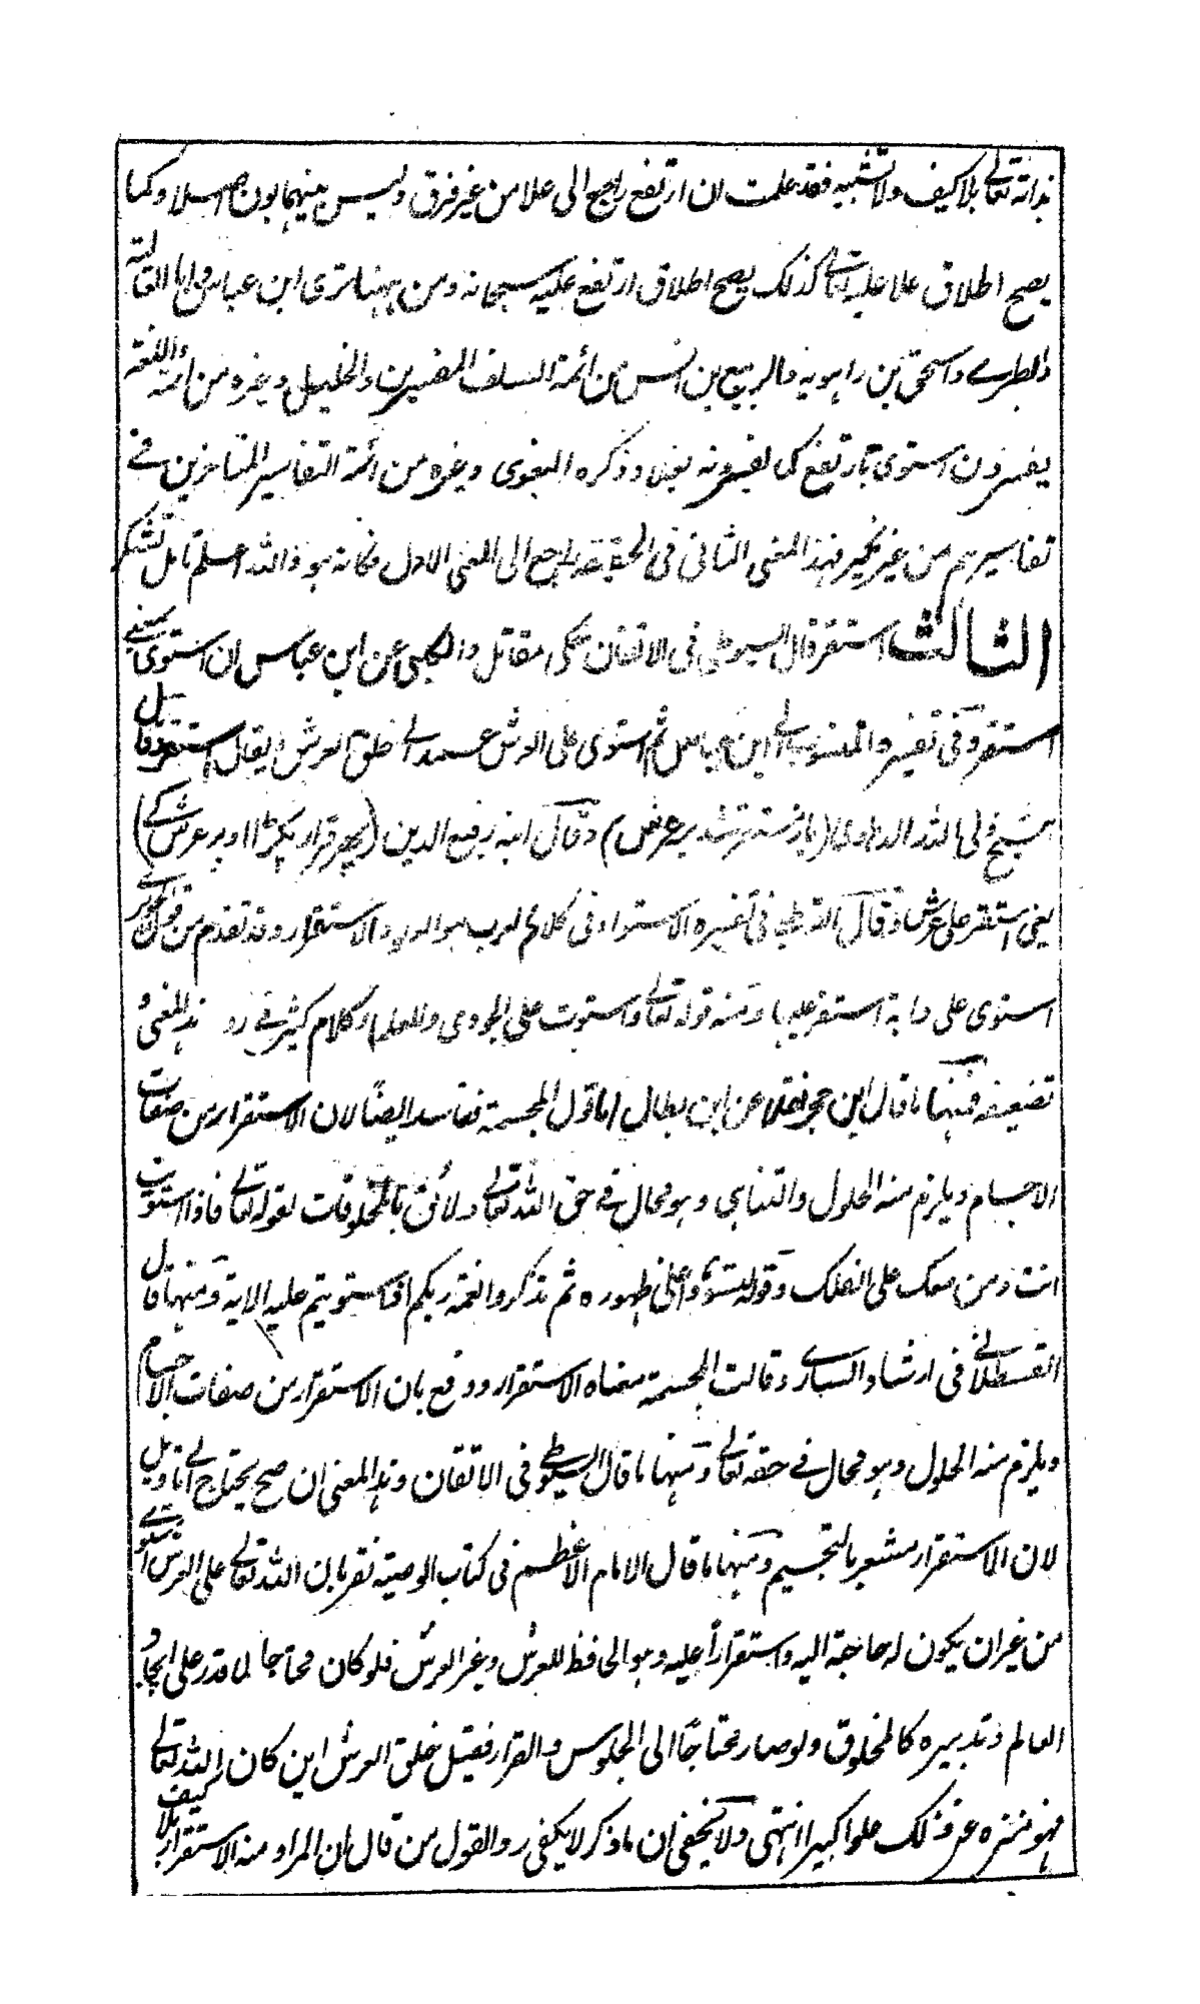 بذاته تعالى بلا كيف ولا تشبيه فقد علمت ان ارتفع راجع الى علا من غير فرق وليس بينهما بون اصلا وكما
يصح اطلاق علا عليه تعالى كذلك يصح اطلاق ارتفع عليه سبحانه ومن ههنا ترى ابن عباس وابا العالية
والطبرے واسحق بن راهويه والربيع بن انس من ائمة السلف المفسرين والخليل وغيره من ائمة اللغة
يفسرون استوى بارتفع كما يفسرونه بعلا وذكره البغوى وغيره من ائمة التفاسير المتاخرين فے
تفاسيرهم من غير نكير فهذا المعنى الثانى فى الحقيقة راجع الى المعنى الاول فكانه هو والله اعلم تامل تشكر
الثالث استقر قال السيوطى فى الاتقان حكى مقاتل والكلبى عن ابن عباس ان استوى بمعنے
استقر وفى تفسيره المنسوب الے ابن عباس ثم استوى على العرش عمد الے خلق العرش ويقال استقر وقال
شيخ ولى الله الدهلوى (باز مستقر شد بر عرش) وقال ابنه رفيع الدين (پهر قرار پكڑا اوپر عرش كے)
يعنى استقر على عرشه وقال القرطبے فى تفسيره الاستواء فى كلام العرب هو العلو والاستقرار وقد تقدم من قول الجوهرے
استوى على دابة استقر عليها ومنه قوله تعالے واستوت على الجودى وللعلماء كلام كثير فے رد هذ المعنى و
تضعيفه فمنها ما قال ابن حجر نقلا عن ابن بطال اما قول المجسمة ففاسد ايضًا لان الاستقرار من صفات
الاجسام ويلزم منه الحلول والتناهى وهو محال فے حق الله تعالے ولائق بالمخلوقات لقوله تعالے فاذا استويت
انت ومن معك على الفلك وقوله لتستوٗا على ظهوره ثم تذكروا نعمة ربكم اذا استويتم عليه الاية ومنها قال
القسطلانے فى ارشاد السارے وقالت المجسمة معناه الاستقرار ودفع بان الاستقرار من صفات الاجسام
ويلزم منه الحلول وهو محال فے حقه تعالے ومنها ما قال السيوطے فى الاتقان وهذ المعنى ان صح يحتاج الے تاويل
لان الاستقرار مشعر بالتجسيم ومنها ما قال الامام الاعظم فى كتاب الوصية نقر بان الله تعالے على العرش استوے
من غير ان يكون له حاجة اليه واستقراراً عليه وهو الحافظ للعرش وغير العرش فلو كان محتاجا لما قدر على ايجاد
العالم وتدبيره كالمخلوق ولو صار محتاجًا الى الجلوس والقرار فقبل خلق العرش اين كان الله تعالے
فهو منزه عن ذلك علوا كبيرا انتهى ولا يخفى ان ما ذكر لا يكفى رد القول من قال ان المراد منه الاستقرار بلا كيف